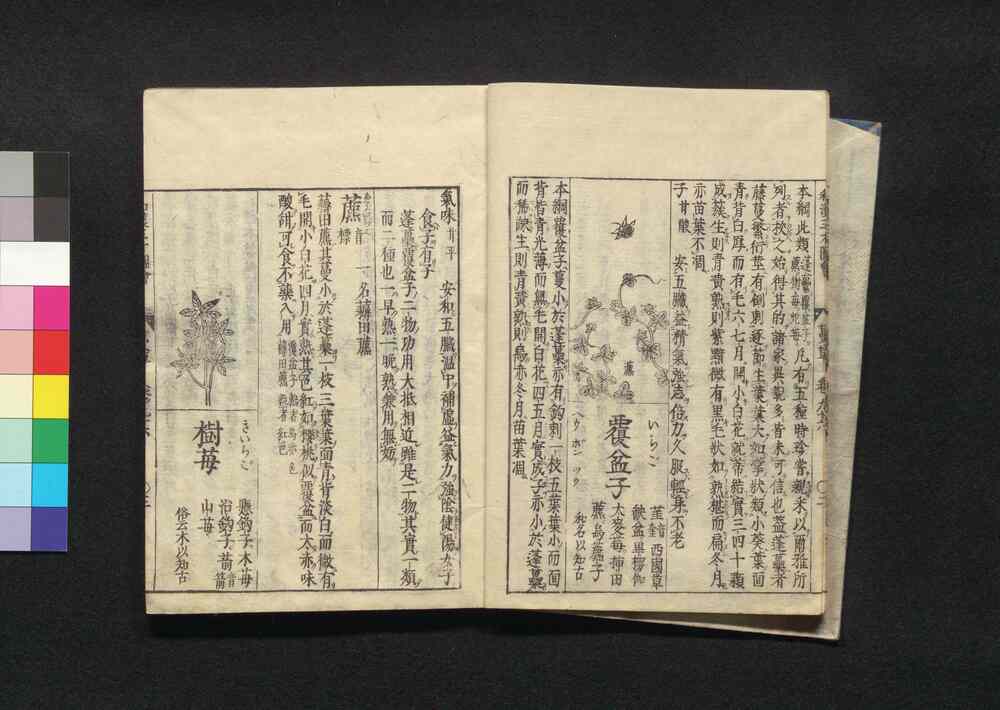 本綱此類蓬蔂覆盆子蔗樹苺蛇苺凡有五種時珍嘗親采以爾雅所
列者校之始得其的諸家異說多皆未可信也蓋蓬蔂者
藤蔓繁衍莖有倒刺逐節生葉葉大如掌狀類小葵葉面
青背白厚而有毛六七月開小白花就蒂結實三四十顆
成簇生則青黃熟則紫黯微有黒毛狀如熟椹而扁冬月
亦苗葉不凋
子甘酸 安五臟益精氣強志倍力久服輕身不老
いちご
覆盆子
フウ ポン ツウ
茥 西國草
缺盆 畢楞伽
大麥莓 插田
藨 烏藨子
和名以知古
本綱覆盆子蔓小於蓬蔂亦有鉤刺一枝五葉葉小而面
背皆青光薄而無毛開白花四五月實成子亦小於蓬蔂
而稀疎生則青黃熟則烏赤冬月苗葉凋
氣味甘平 安和五臟温中補虚益氣力強陰健陽女子
食子有子
蓬蔂覆盆子二物功用大抵相近雖是二物其實一類
而二種也一早熟一晩熟兼用無妨
藨 音標 一名薅田藨
薅田藨其蔓小於蓬蔂一枝三葉葉面青背淡白而微有
毛開小白花四月實熟其色紅如櫻桃
覆盆子熟者烏赤色
薅田藨熟者紅色
似覆盆而大亦味
酸甜可食不藥入用
きいちご
樹苺
懸鈎子 木苺
沿鈎子 葥 音箭
山苺
俗云木以知古